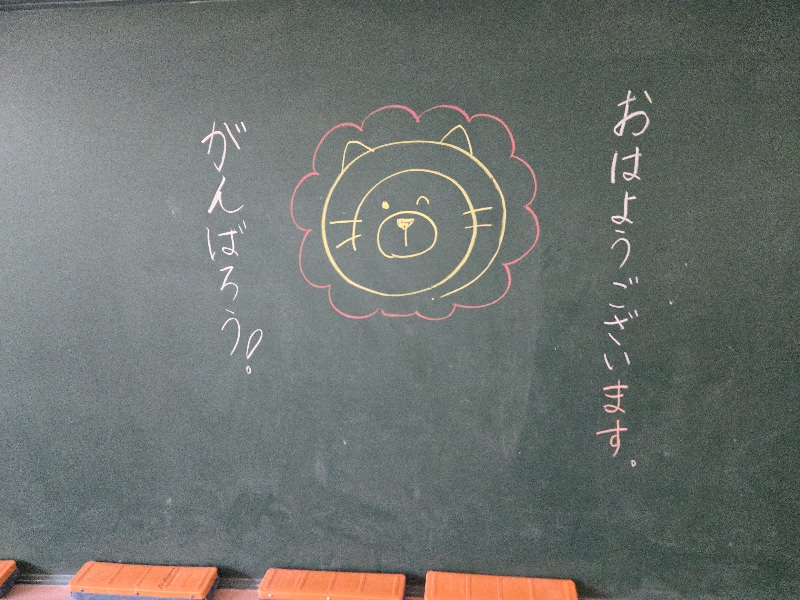 おはようございます。
がんばろう!